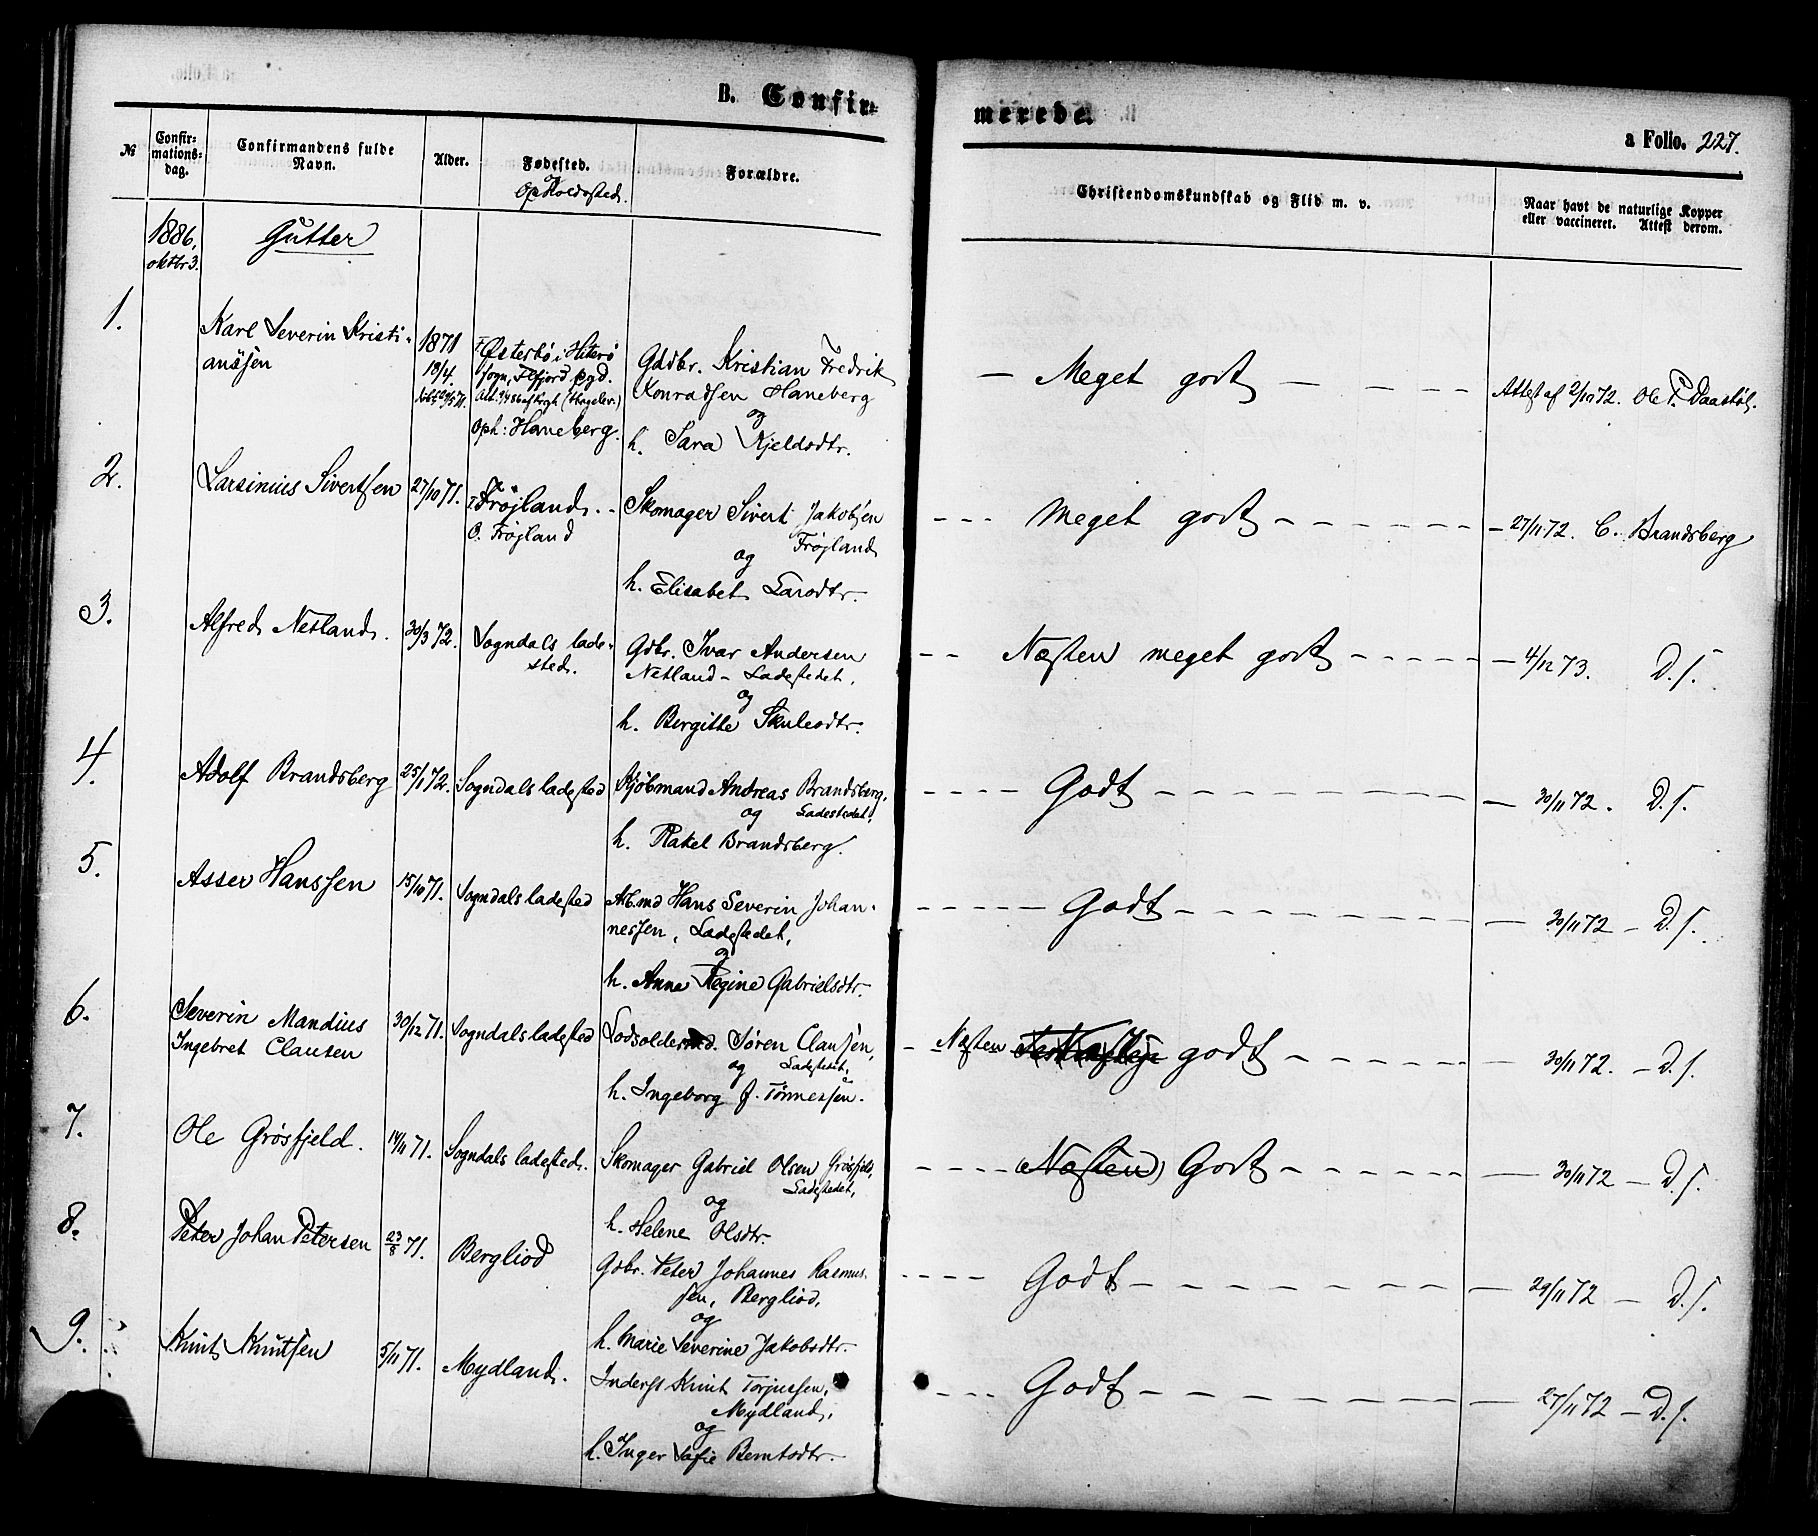 B. Confir=
merede.
a Folio. 227.
№
Confir=
mations=
dag.
Confirmandens fulde
Navn.
Alder.
Fødested.
og
Opholdssted.
Forældre.
Christendomskundskab og Flid m. v.
Naar havt de naturlige Kopper
eller vaccineret. Attest derom.
1886,
oktbr 3.
Gutter
1.
Karl Severin Kristi-
anssen
1871
13/4.
Østerbø i Hiterø
sogn, Flefjord pgd.
Oph: Haneberg.
Gdbr. Kristian Fredrik
Konradsen Haneberg
og
h. Sara Kjeldsdtr.
— Meget godt — — —
Attest af 2/10 72. Ole T.
2.
Larsinius Sivertsen
27/10 71.
Frøjland. -
O. Frøjland
Skomager Sivert Jakobsen
Frøjland
og
h. Elisabet Larsdtr.
--- Meget godt - - - - - -
- 27/11 72. C. Brandsberg
3.
Alfred Netland.
30/3 72.
Sogndals lade-
sted.
Gdbr. Ivar Andersen
Netland - Ladestedet,
og
h. Bergitte Skulesdtr.
-- Næsten meget godt - - - - -
- 4/12 73. D. s.
4.
Adolf Brandsberg
25/1 72.
Sogndals ladested
Kjøbmand Andreas Brandsberg,
og Ladestedet,
h. Rakel Brandsberg.
---- Godt - - - - - - - -
- 30/11 72. D. s.
5.
Asser Hanssen
15/10 71.
Sogndals ladested
Arb.md Hans Severin Johan-
nessen, Ladestedet,
og
h. Anne Regine Gabrielsdtr.
----- Godt - - - - - - -
- 30/11 72 - D. s.
6.
Severin Mandius
Ingebret Clausen
30/12 71.
Sogndals ladested
Lodsolderm. Søren Clausen,
og Ladestedet,
h. Ingeborg J. Tønnessen.
- Næsten godt - - - - -
30/11 72. - D. s.
7.
Ole Grøsfjeld.
14/11 71.
Sogndals ladested.
Skomager Gabriel Olsen Grøsfjeld,
Ladestedet,
og
h. Helene Olsdtr.
---- (Næsten) Godt - - - - -
- 30/11 72 - D. s.
8.
Peter Johan Petersen
23/8 71.
Bergliod
Gdbr. Peter Johannes Rasmus-
sen, Bergliod,
og
h. Marie Severine Jakobsdtr.
---- Godt - - - - - - - -
- 29/11 72 - D. s.
9.
Knut Knutsen
5/11 71.
Mydland.
Inderst Knut Torjussen,
Mydland,
og
h. Inger Sofie Berntsdtr.
--- Godt - - - - - - - -
- 27/11 72 - D. s.